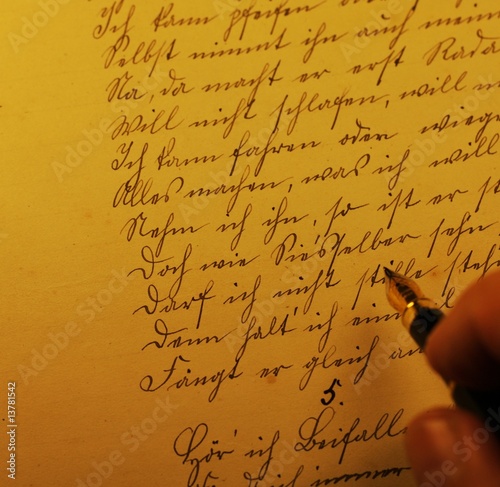 Ich kann pfeifen
Selbst nimmt ihn auch mein
Na, da macht er erst Rada
Will nicht schlafen, will n
Ich kann fahren oder wiege
Alles machen, was ich will
Nehm ich ihn, so ist er st
Doch wie Sie's selber sehn
Darf ich nicht stille steh
Denn halt' ich ein
Fängt er gleich an
5.
Hör' ich Beifall
ich immer
Adobe Stock | #13781542